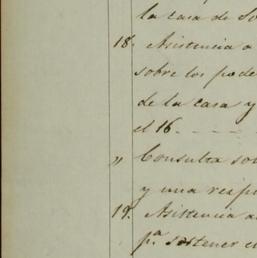 la casa de So
18. Asistencia a
sobre los pode
de la casa y
el 16.
„ Consulta so
y una resp
19. Asistencia a
pª sostener e